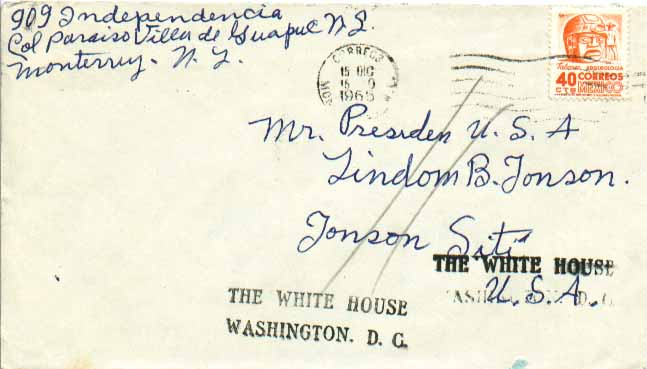 909 Independencia
Col Paraiso Villa de Guapue N L.
Monterrey - N. L.
CORREOS
15 DIC
1965
Tabasco ARQUEOLOGIA
40 CORREOS
CTS MEXICO
Mr. Presiden U. S. A
Lindom B. Jonson.
Jonson Siti
THE WHITE HOUSE
U. S. A.
THE WHITE HOUSE
WASHINGTON. D. C.